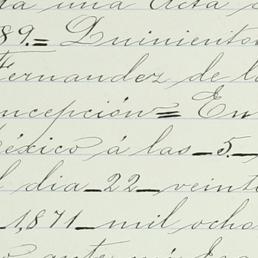 una Acta
89.= Quiniento
Fernandez de l
ncepción= En
éxico á las_5._
l dia_22_veint
_1,871_mil ocho
ante mí